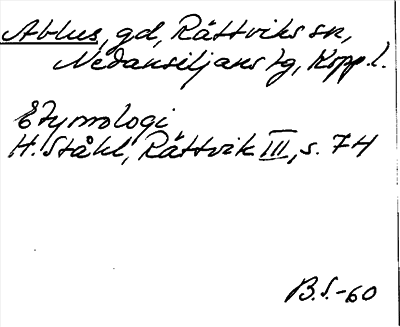 Ablus, gd, Rättviks sn,
Nedansiljans tg, Kopp. l.
Etymologi
H. Ståhl, Rättvik III, s. 74
B.S.-60